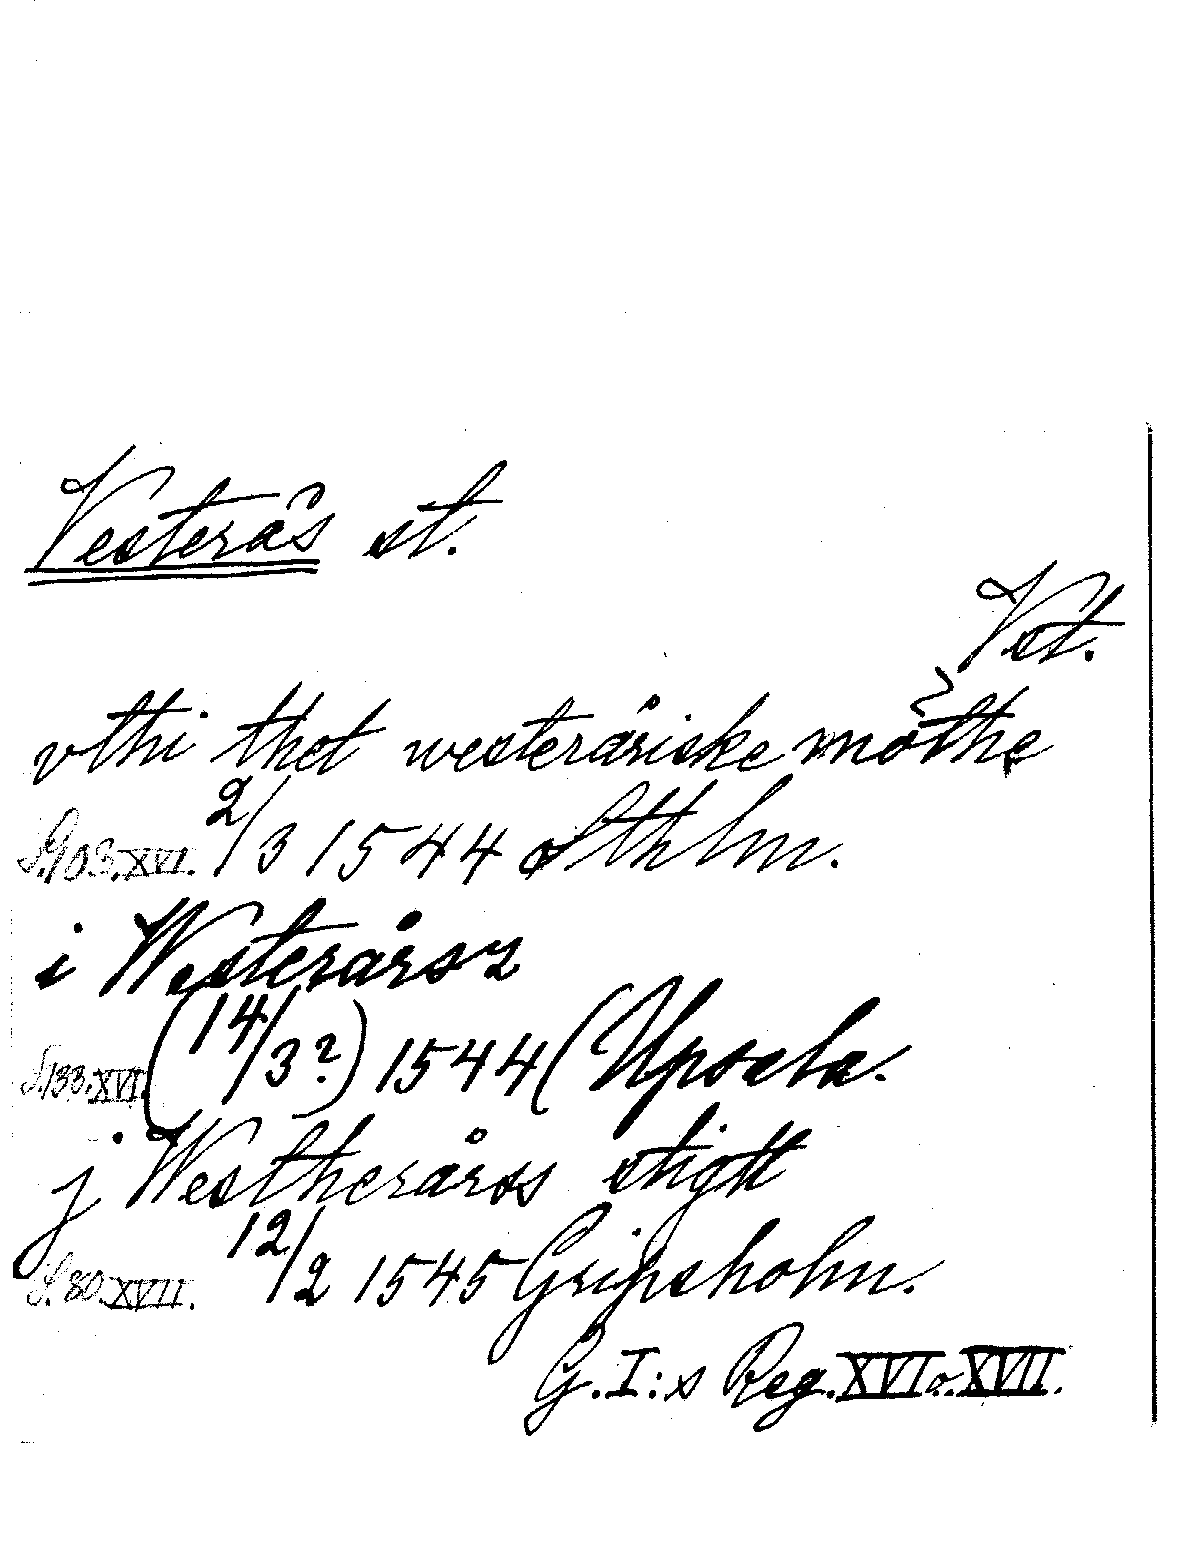 Vesterås st.
Vst.
vthi thet westeråriske möthe
S. 903. XVI. 2/3 1544 Sthlm.
i Westerårsz
S. 133. XVI. (14/3?) 1544 (Upsala.
j Westherårss stigtt
S. 80. XVII. 12/2 1545 Gripsholm.
G. I:s Reg. XVI o. XVII.